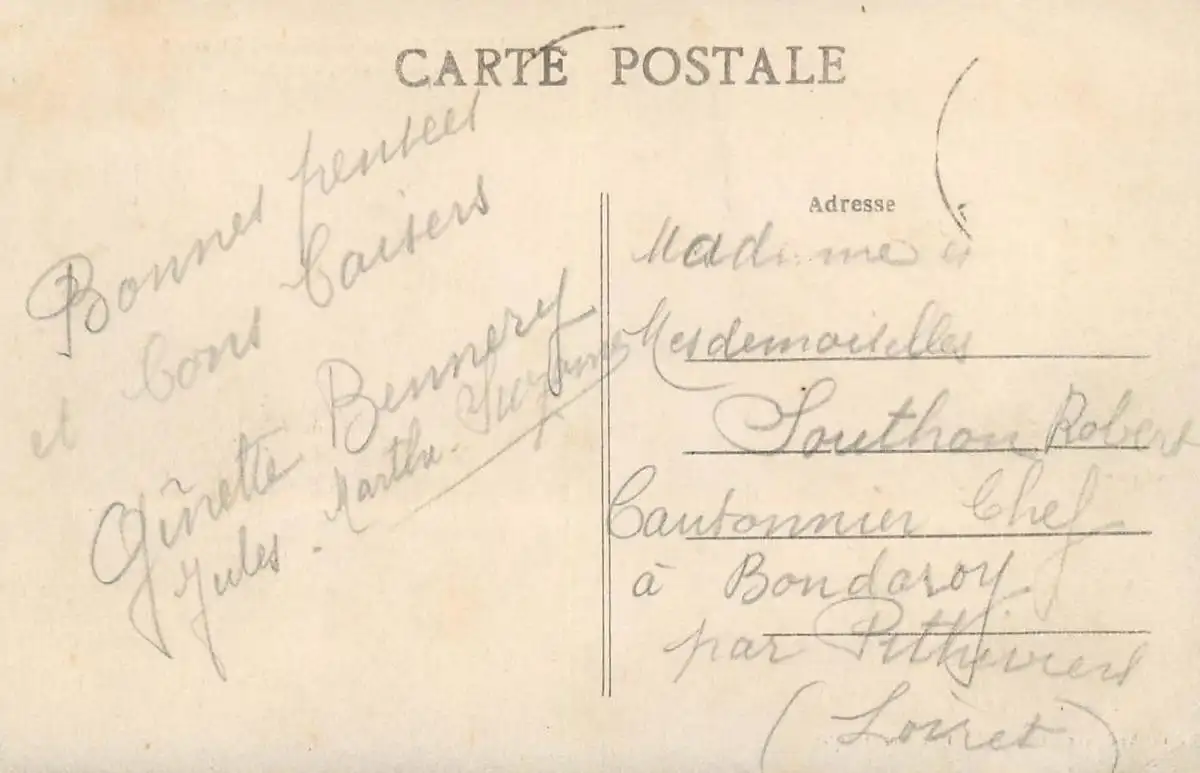 CARTE POSTALE
Bonnes pensées
et bons baisers
Ginette Bennery
Jules - Marthe - Suzanne
Adresse
Madame et
Mesdemoiselles
Southon Robert
Cantonnier Chef
à Bondaroy
par Pithiviers
(Loiret)